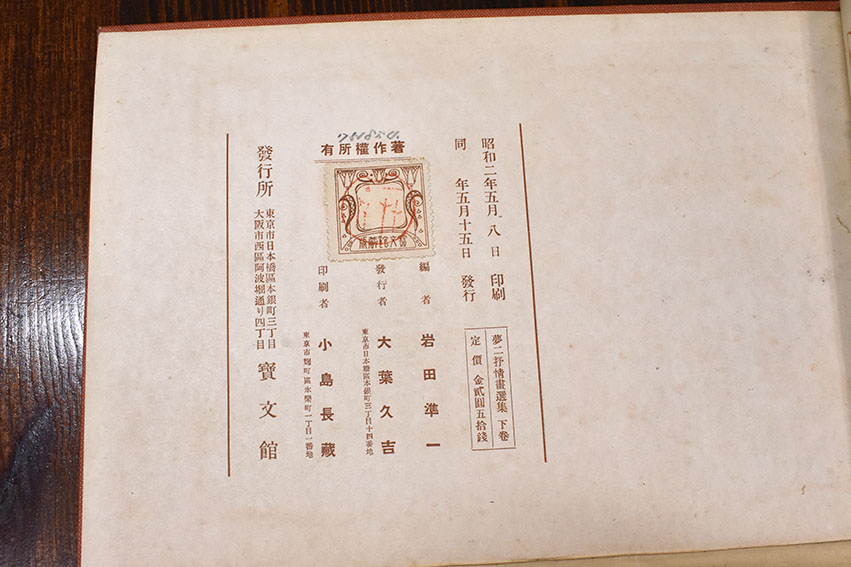 昭和二年五月八日 印刷
同 年五月十五日 發行
夢二抒情畫選集 下卷
定價 金貳圓五拾錢
著作權所有
編者 岩田準一
發行者 大葉久吉
東京市日本橋區本銀町三丁目十四番地
印刷者 小島長藏
東京市麹町區永樂町一丁目一番地
發行所 東京市日本橋區本銀町三丁目
大阪市西區阿波堀通リ四丁目
寶文館